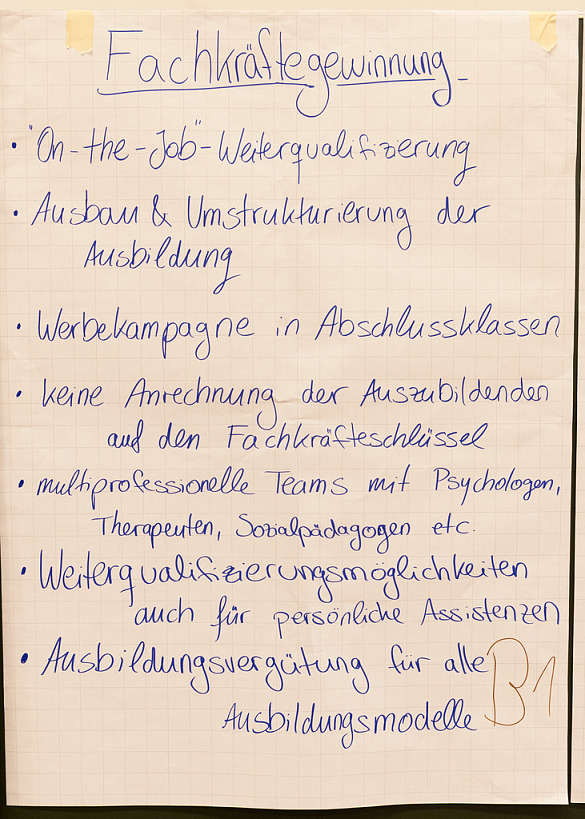 Fachkräftegewinnung
• "On-the-Job"-Weiterqualifizierung
• Ausbau & Umstrukturierung der
Ausbildung
• Werbekampagne in Abschlussklassen
• keine Anrechnung der Auszubildenden
auf den Fachkräfteschlüssel
• multiprofessionelle Teams mit Psychologen,
Therapeuten, Sozialpädagogen etc.
• Weiterqualifizierungsmöglichkeiten
auch für persönliche Assistenzen
• Ausbildungsvergütung für alle
Ausbildungsmodelle
B1